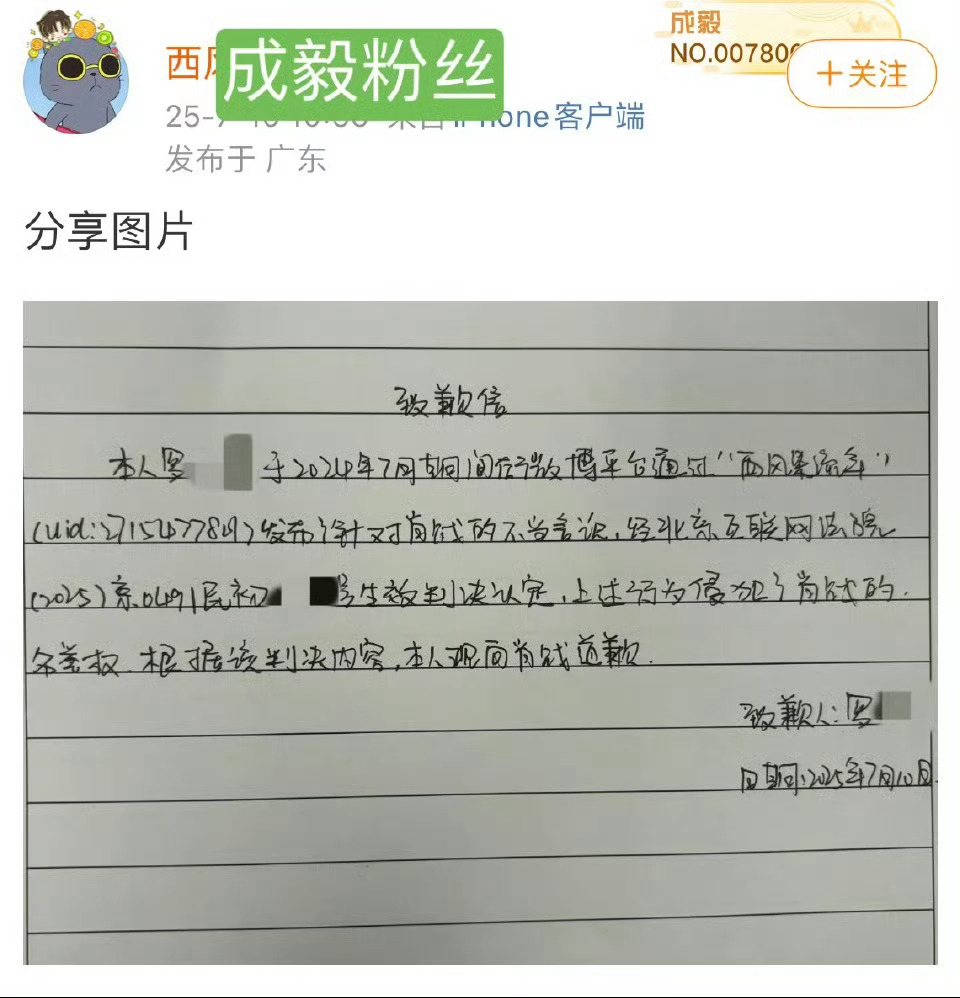 成毅
NO.00780
西风
成毅粉丝
+关注
25-7-10 来自 iPhone客户端
发布于 广东
分享图片
致歉信
本人罗 于2024年7月期间在微博平台通过“西风墨流年”
(uid:2715477849)发布了针对肖战的不当言论,经北京互联网法院
(2025)京0491民初 号生效判决认定,上述行为侵犯了肖战的
名誉权.根据该判决内容,本人现向肖战道歉.
致歉人:罗
日期:2025年7月10日.